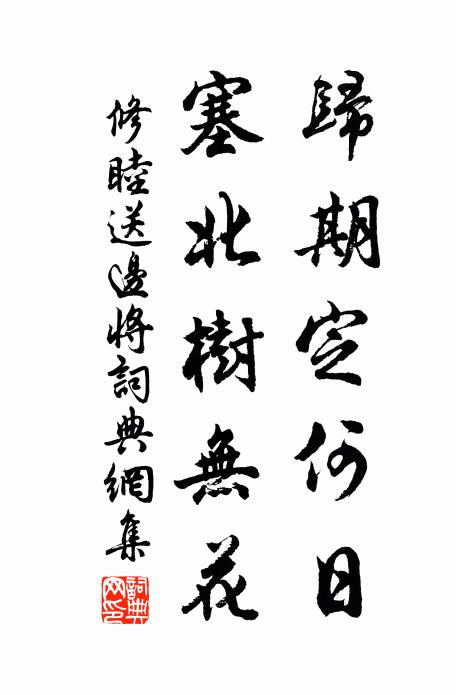 歸期定何日
塞北樹無花
修睦送邊將詞典網集
詞典
網印